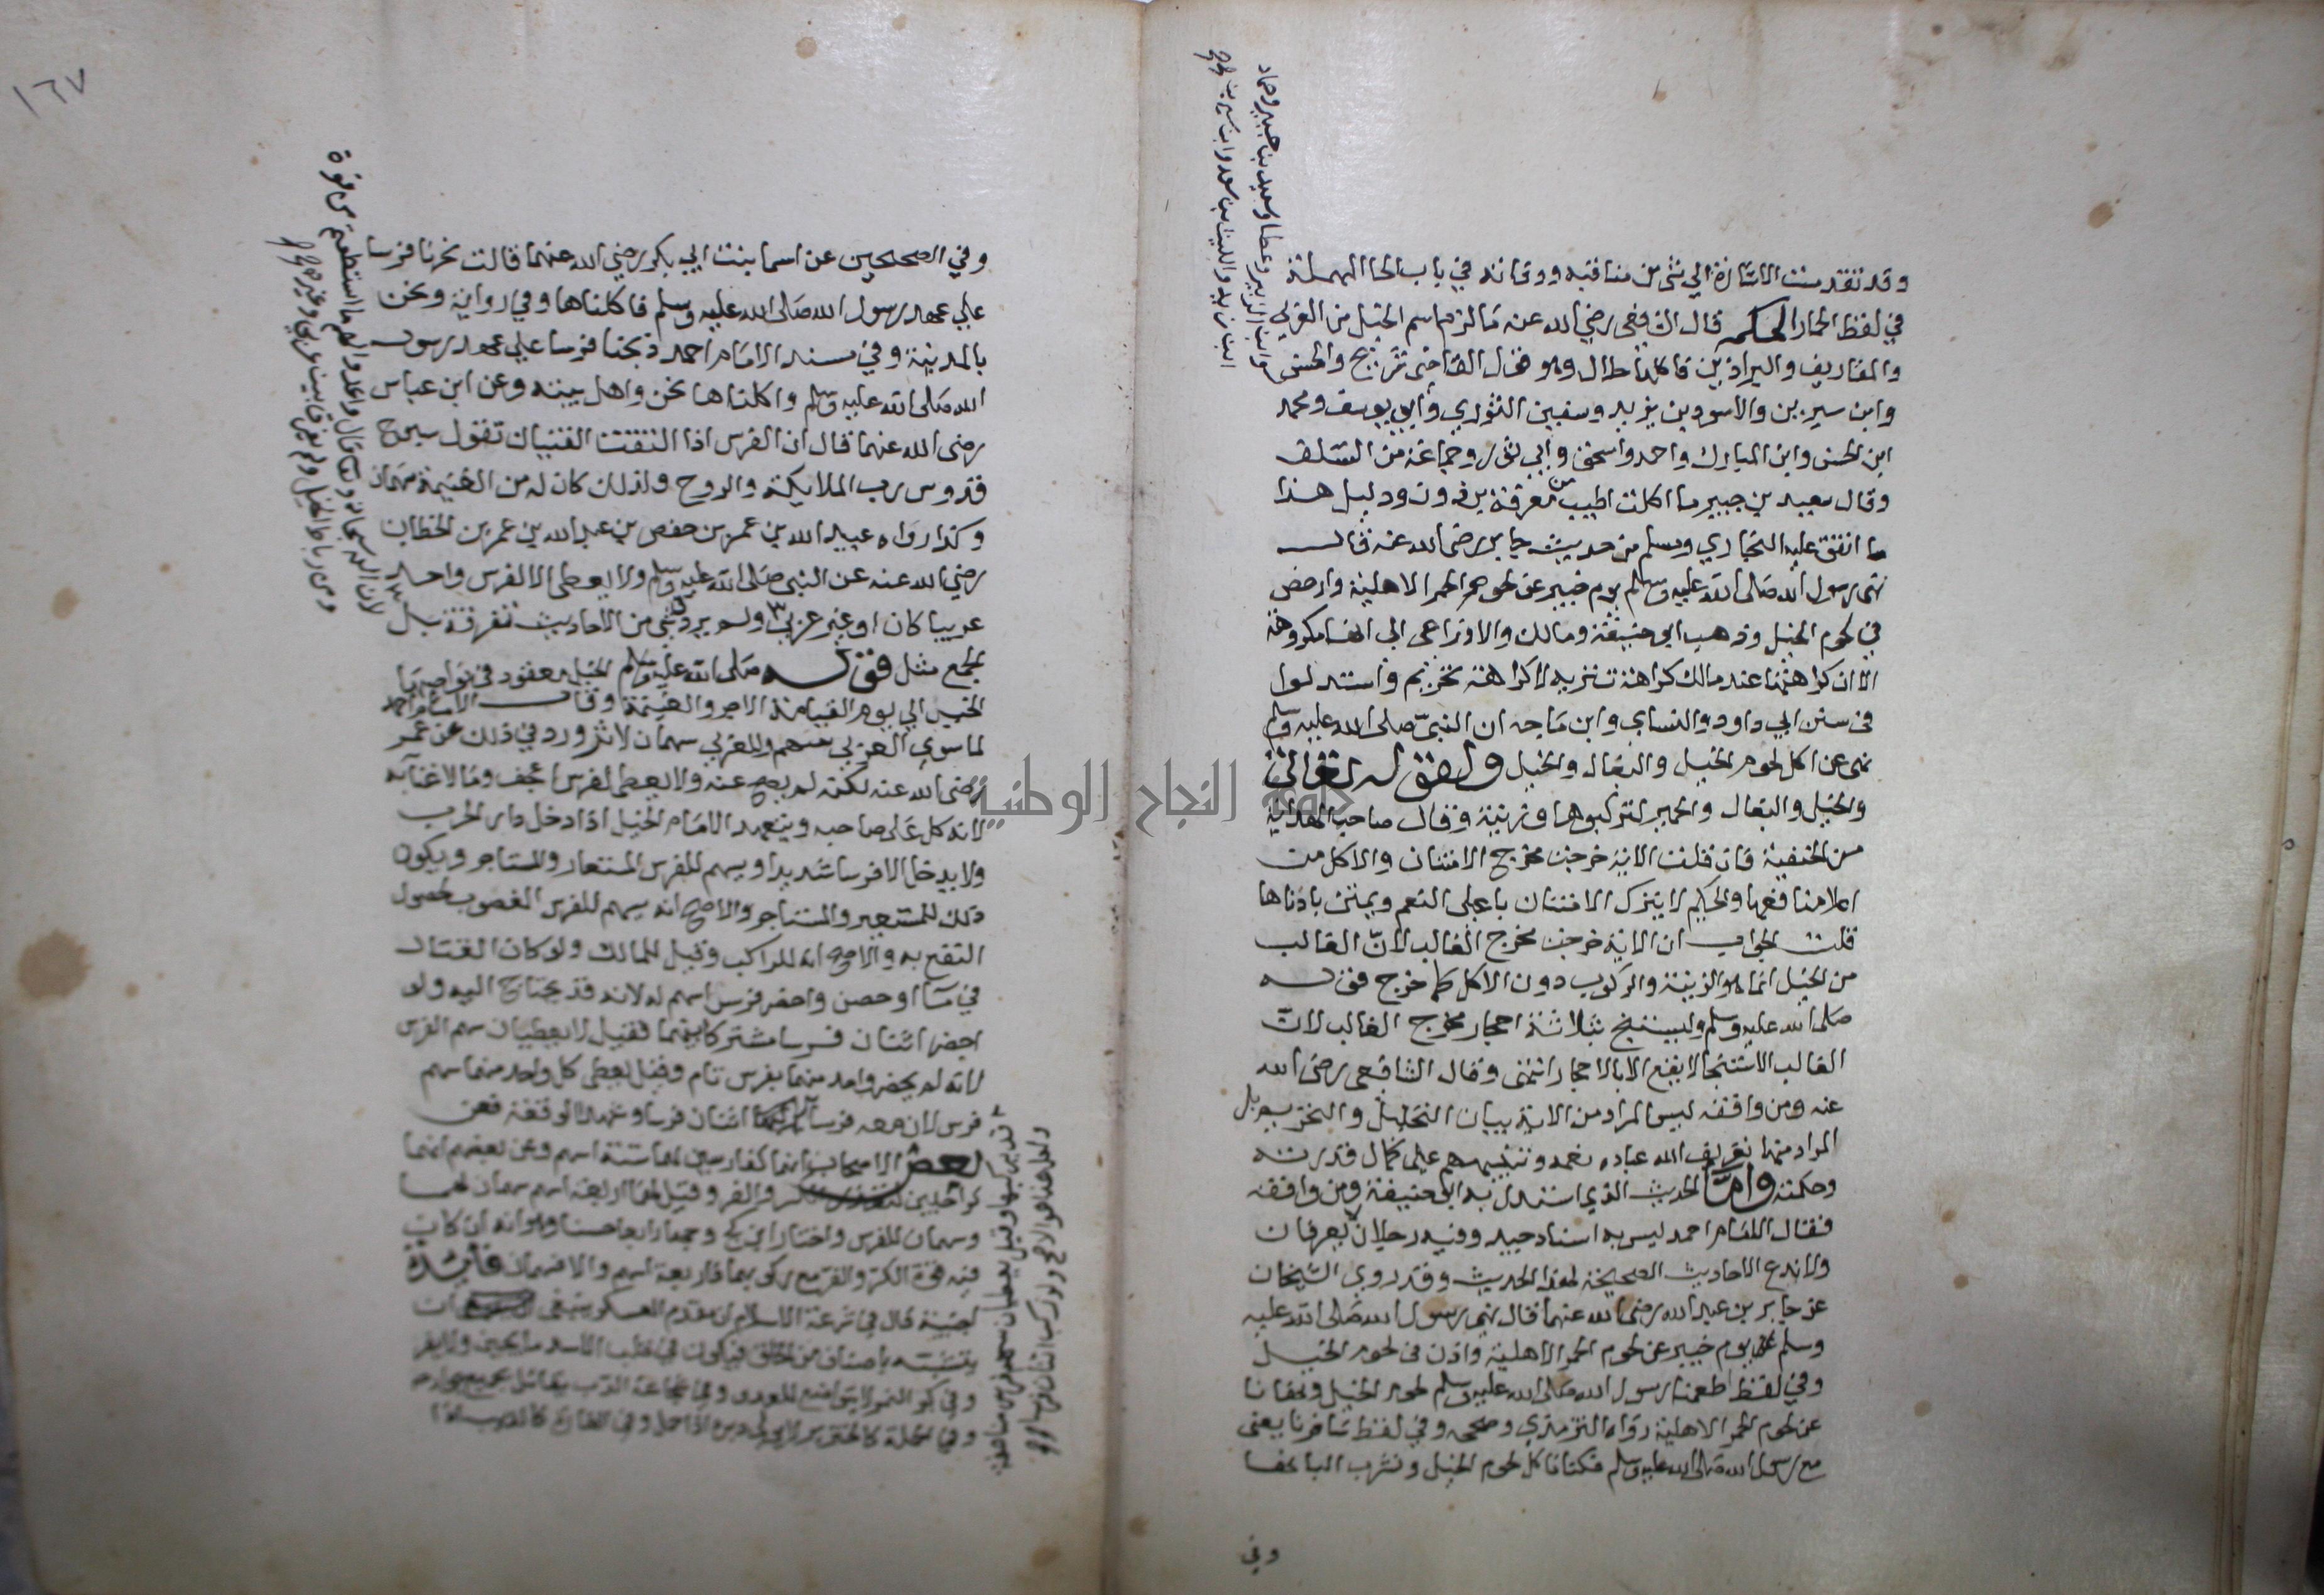 وقد تقدمت الاشارة الي شي من مناقبه ووفاته في باب الحا المهملة
في لفظ الحمار الحكم قال الشافعي رضي الله عنه ما لزم اسم الخيل من العراب
والمقاريف والبراذين فاكلها حلال وهو قول القاضي شريح والحسن
وابن الزبير وعطا وسعيد بن جبير وحماد
وابن سيرين والاسود بن يزيد وسفين الثوري وأبي يوسف ومحمد
ابن الحسن وابن المبارك واحمد واسحق وأبي ثور وجماعة من السلف
وقال سعيد بن جبير ما اكلت اطيب من معرفة برذون ودليل هذا
ما اتفق عليه البخاري ومسلم من حديث جابر رضي الله عنه قال
نهى رسول الله صلى الله عليه وسلم يوم خيبر عن لحوم الحمر الاهلية وارخص
في لحوم الخيل وذهب ابو حنيفة ومالك والاوزاعي الي انها مكروهة
الا ان كراهتها عند مالك كراهة تنزيه لا كراهة تحريم واستدلوا
في سنن ابي داود والنساي وابن ماجه ان النبي صلى الله عليه وسلم
نهى عن اكل لحوم الخيل والبغال والحمير ولقوله تعالى
والخيل والبغال والحمير لتركبوها وزينة وقال صاحب الهداية
من الحنفية فان قلت الاية خرجت مخرج الامتنان والاكل من
اعلا منافعها والحكيم لا يترك الامتنان باعلى النعم ويمتن بادناها
قلت الجواب ان الاية خرجت مخرج الغالب لان الغالب
من الخيل انما هو الزينة والركوب دون الاكل كما خرج قوله
صلى الله عليه وسلم وليستنج بثلاثة احجار مخرج الغالب لان
الغالب الاستنجا لا يقع الا بالاحجار انتهى وقال الشافعي رضي الله
عنه ومن وافقه ليس المراد من الاية بيان التحليل والتحريم بل
المراد منها تعريف الله عباده نعمه وتنبيههم على كمال قدرته
وحكمته واما الحديث الذي استدل به ابو حنيفة ومن وافقه
فقال الامام احمد ليس به اسناد جيد وفيه رجلان لا يعرفان
ولا ندع الاحاديث الصحيحة لهذا الحديث وقد روى الشيخان
عن جابر بن عبد الله رضي الله عنهما قال نهى رسول الله صلى الله عليه
وسلم يوم خيبر عن لحوم الحمر الاهلية واذن في لحوم الخيل
وفي لفظ اطعمنا رسول الله صلى الله عليه وسلم لحوم الخيل ونهانا
عن لحوم الحمر الاهلية رواه الترمذي وصححه وفي لفظ سافرنا يعني
مع رسول الله صلى الله عليه وسلم فكنا ناكل لحوم الخيل ونشرب البانها
وفي
١٦٧
وفي الصحيحين عن اسما بنت ابي بكر رضي الله عنهما قالت نحرنا فرسا
علي عهد رسول الله صلى الله عليه وسلم فاكلناها وفي رواية ونحن
بالمدينة وفي مسند الامام احمد ذبحنا فرسا علي عهد رسول
الله صلى الله عليه وسلم واكلناها نحن واهل بيته وعن ابن عباس
رضي الله عنهما قال ان الفرس اذا التقت الفئتان تقول سبوح
قدوس رب الملايكة والروح ولذلك كان له من الغنيمة سهمان
وكذا رواه عبيد الله بن عمر بن حفص بن عبد الله بن عمر بن الخطاب
رضي الله عنه عن النبي صلى الله عليه وسلم ولا يعطى الا لفرس واحد
عربيا كان او غير عربي
لان الله سبحانه وتعالى قال واعدوا لهم ما استطعتم من قوة
ومن رباط الخيل ولم يفرق بين عربي وغيره
ولم يرد في شي من الاحاديث تفرقة بل
الجمع مثل قوله صلى الله عليه وسلم الخيل معقود في نواصيها
الخير الي يوم القيامة الاجر والغنيمة وقال الامام احمد
لما سوي العربي سهم وللعربي سهمان لاثر ورد في ذلك عن عمر
رضي الله عنه لكنه لم يصح عنه ولا يعطى لفرس اعجف وما لا غنا به
لانه كل على صاحبه ويتعهد الامام الخيل اذا دخل دار الحرب
ولا يدخل الا فرسا شديدا ويسهم للفرس المستعار والمستاجر ويكون
ذلك للمستعير والمستاجر والاصح انه يسهم للفرس المغصوب لحصول
النفع به والاصح انه للراكب وقيل للمالك ولو كان القتال
في ما او حصن واحضر فرس اسهم له لانه قد يحتاج اليه ولو
احضر اثنان فرسا مشتركا بينهما فقيل لا يعطيان سهم الفرس
لانه لم يحضر واحد منهما بفرس تام وقيل يعطى كل واحد منهما سهم
فرس لان معه فرسا
اثنان فرسا وشهدا الوقعة فعن
بعض الاصحاب انهما كفارسين لهما ستة اسهم وعن بعضهم انهما
كراجلين لتعذر الكر والفر وقيل لهما اربعة اسهم سهمان لهما
وسهمان للفرس واختار ابن كج وجها رابعا حسنا وهو انه ان كان
فيه قوة الكر والفر مع ركوبهما فاربعة اسهم والا فسهمان فائدة
اجنبية قال في شرعة الاسلام